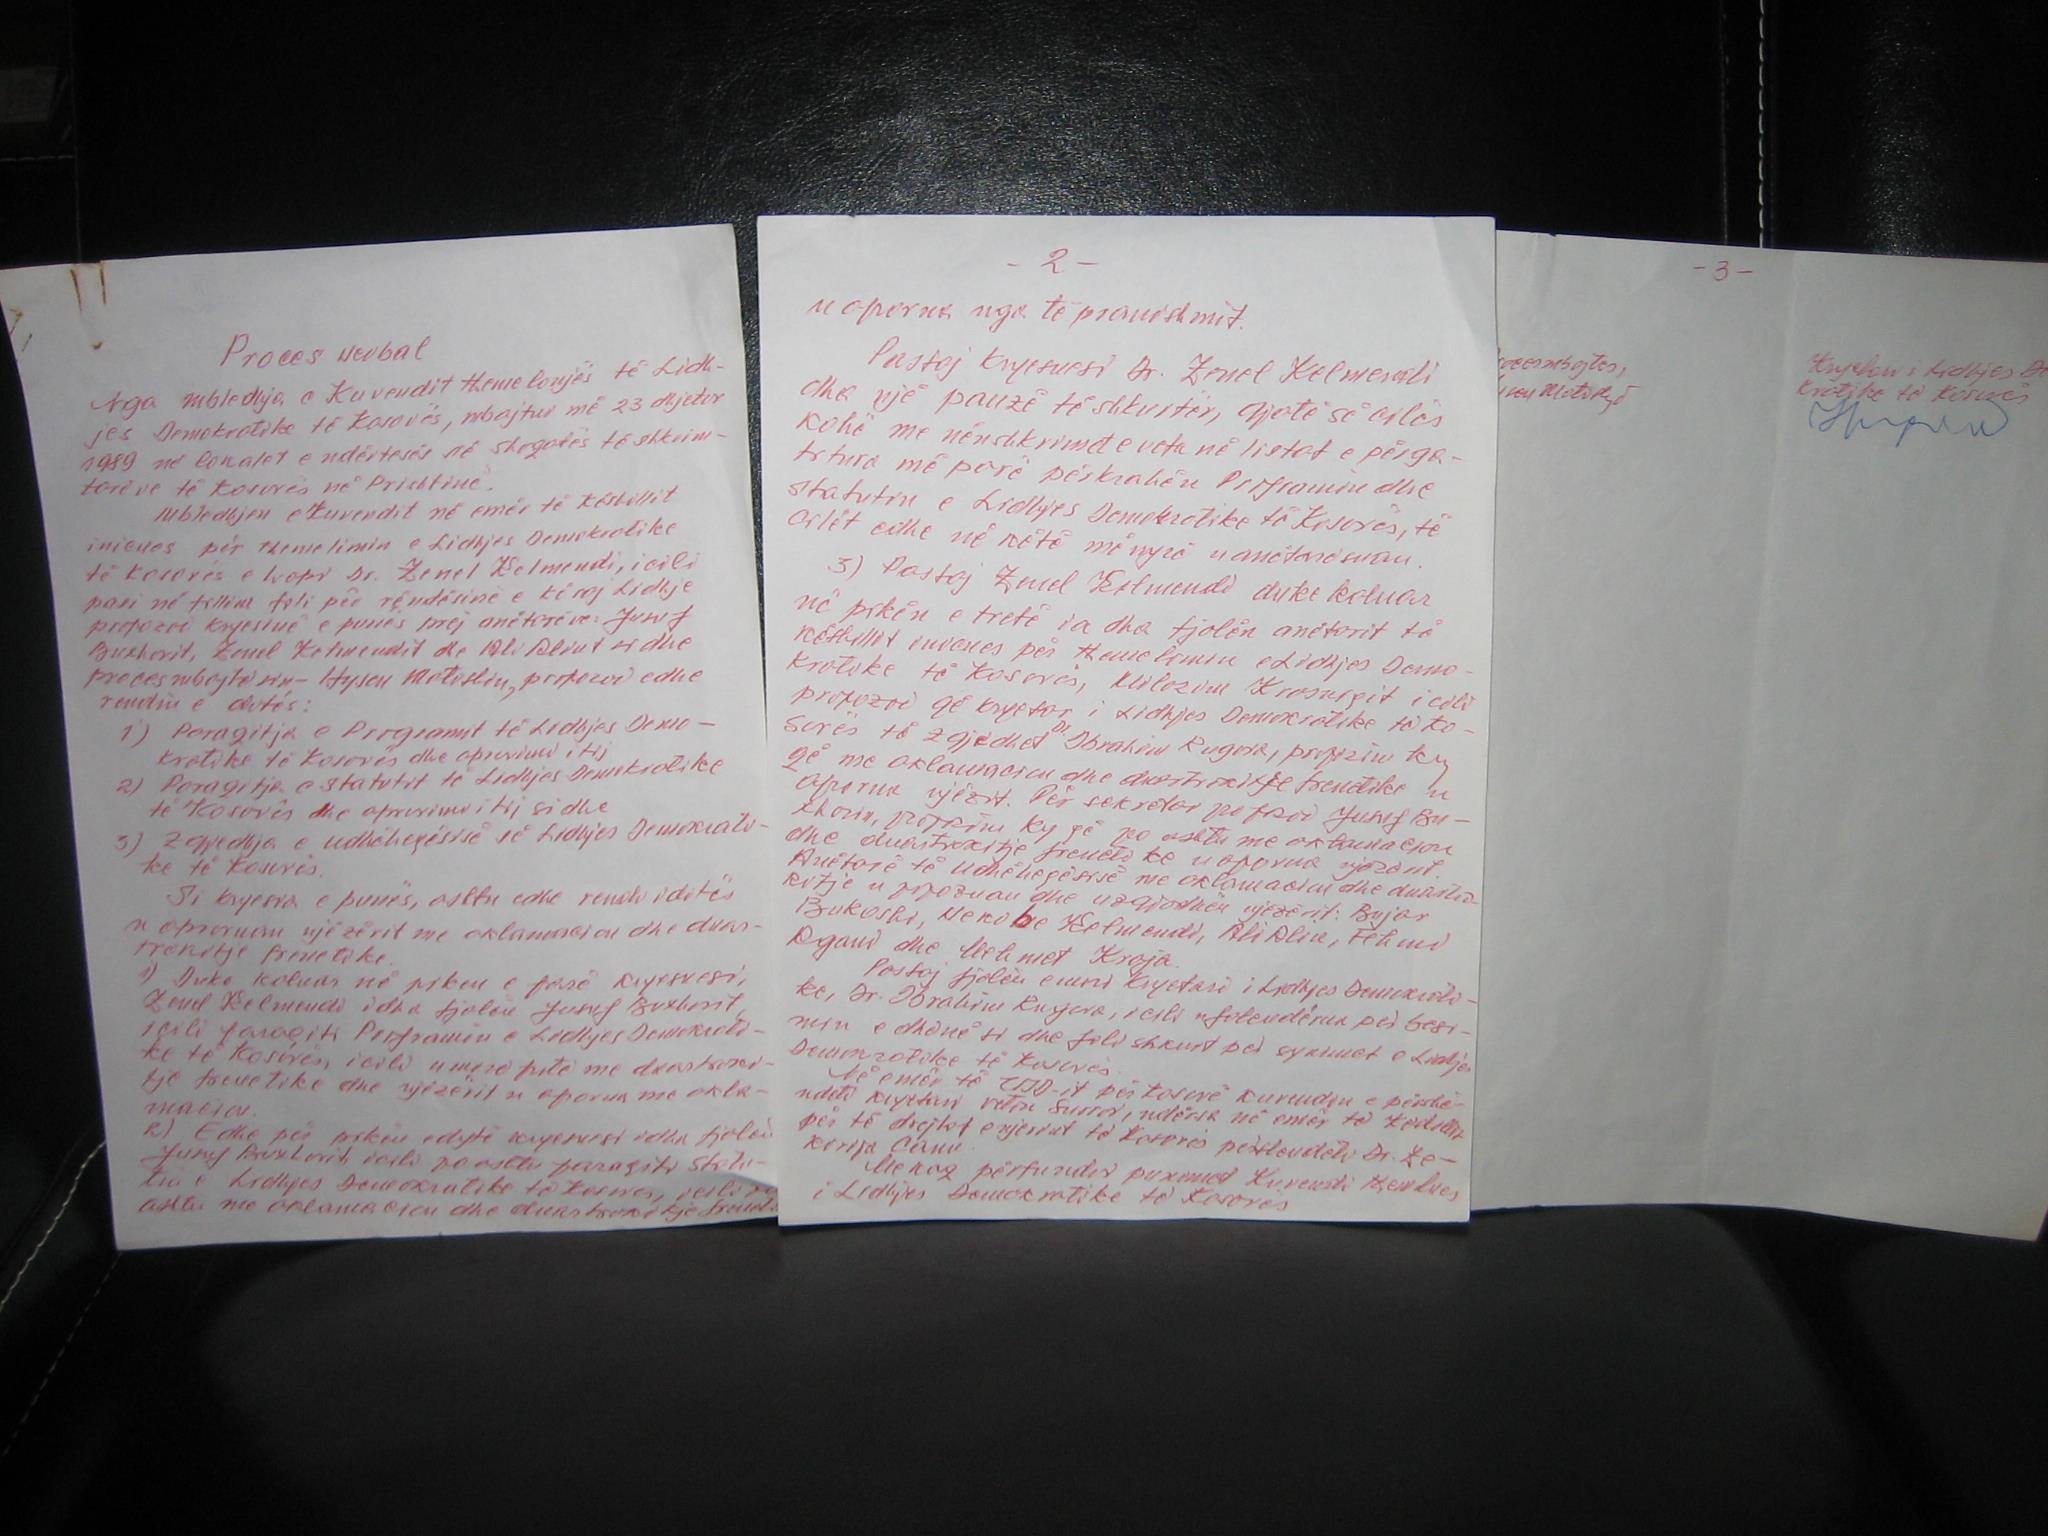 Proces verbal
Nga mbledhja e Kuvendit themelonjës të Lidh-
jes Demokratike të Kosovës, mbajtur më 23 dhjetor
1989 në lokalet e ndërtesës së shoqatës të shkrim-
tarëve të Kosovës në Prishtinë.
Mbledhjen e Kuvendit në emër të Këshillit
inicues për themelimin e Lidhjes Demokratike
të Kosovës e hapi Dr. Zenel Kelmendi, i cili
pasi në fillim foli për rëndësinë e kësaj Lidhje
propozoi kryesinë e punës prej anëtarëve: Jusuf
Buxhovit, Zenel Kelmendit dhe Ali Aliut si dhe
procesmbajtësin - Hysen Matoshin, propozoi edhe
rendin e ditës:
1) Paraqitja e Programit të Lidhjes Demo-
kratike të Kosovës dhe aprovimi i tij
2) Paraqitja e statutit të Lidhjes Demokratike
të Kosovës dhe aprovimi i tij si dhe
3) Zgjedhja e udhëheqësisë së Lidhjes Demokrati-
ke të Kosovës.
Si kryesia e punës, ashtu edhe rendi i ditës
u aprovuan njëzërit me aklamacion dhe duar-
trokitje frenetike.
1) Duke kaluar në pikën e parë kryesuesi,
Zenel Kelmendi i dha fjalën Jusuf Buxhovit,
i cili paraqiti Programin e Lidhjes Demokrati-
ke të Kosovës, i cili u mirëprit me duartroki-
tje frenetike dhe njëzërit u aprovua me akla-
macion.
2) Edhe për pikën e dytë kryesuesi i dha fjalën
Jusuf Buxhovit, i cili po ashtu paraqiti Statu-
tin e Lidhjes Demokratike të Kosovës, i cili po
ashtu me aklamacion dhe duartrokitje frenetike
- 2 -
u aprovua nga të pranishmit.
Pastaj Kryesuesi Dr. Zenel Kelmendi
dha një pauzë të shkurtër, gjatë së cilës
kohë me nënshkrimet e veta në listat e përga-
titura më parë përkrahën Programin dhe
Statutin e Lidhjes Demokratike të Kosovës, të
cilët edhe në këtë mënyrë u anëtarësuan.
3) Pastaj Zenel Kelmendi duke kaluar
në pikën e tretë ia dha fjalën anëtarit të
Këshillit inicues për themelimin e Lidhjes Demo-
kratike të Kosovës, Milazim Krasniqit i cili
propozoi që kryetar i Lidhjes Demokratike të Ko-
sovës të zgjedhet Dr Ibrahim Rugova, propozim ky
që me aklamacion dhe duartrokitje frenetike u
aprovua njëzërit. Për sekretar propozoi Jusuf Bu-
xhovin, propozim ky që po ashtu me aklamacion
dhe duartrokitje frenetike u aprovua njëzërit.
Anëtarë të udhëheqësisë me aklamacion dhe duartro-
kitje u propozuan dhe u zgjodhën njëzërit: Bujar
Bukoshi, Nekibe Kelmendi, Ali Aliu, Fehmi
Agani dhe Mehmet Kraja.
Pastaj fjalën e mori Kryetari i Lidhjes Demokrati-
ke, Dr. Ibrahim Rugova, i cili u falenderua për besi-
min e dhënë si dhe foli shkurt për synimet e Lidhjes
Demokratike të Kosovës.
Në emër të UJDI-it për Kosovë kuvendin e përshë-
ndeti kryetari Veton Surroi, ndërsa në emër të Këshillit
për të drejtat e njeriut të Kosovës përshëndeti Dr. Ze-
kerija Cana.
Me kaq përfundoi punimet Kuvendi themelues
i Lidhjes Demokratike të Kosovës
- 3 -
ocesmbajtës,
sen Matoshi
Kryetari i Lidhjes De
kratike të Kosovës